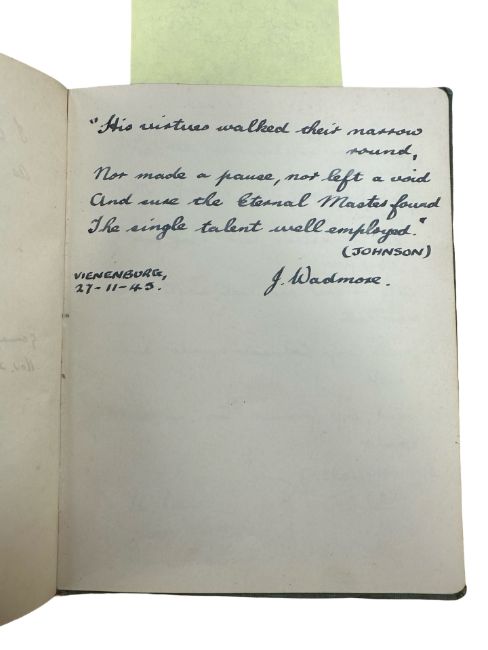 "His virtues walked their narrow
round,
Nor made a pause, nor left a void
And sure the Eternal Master found
The single talent well employed."
(JOHNSON)
VIENENBURG,
27-11-45.
J. Wadmore.